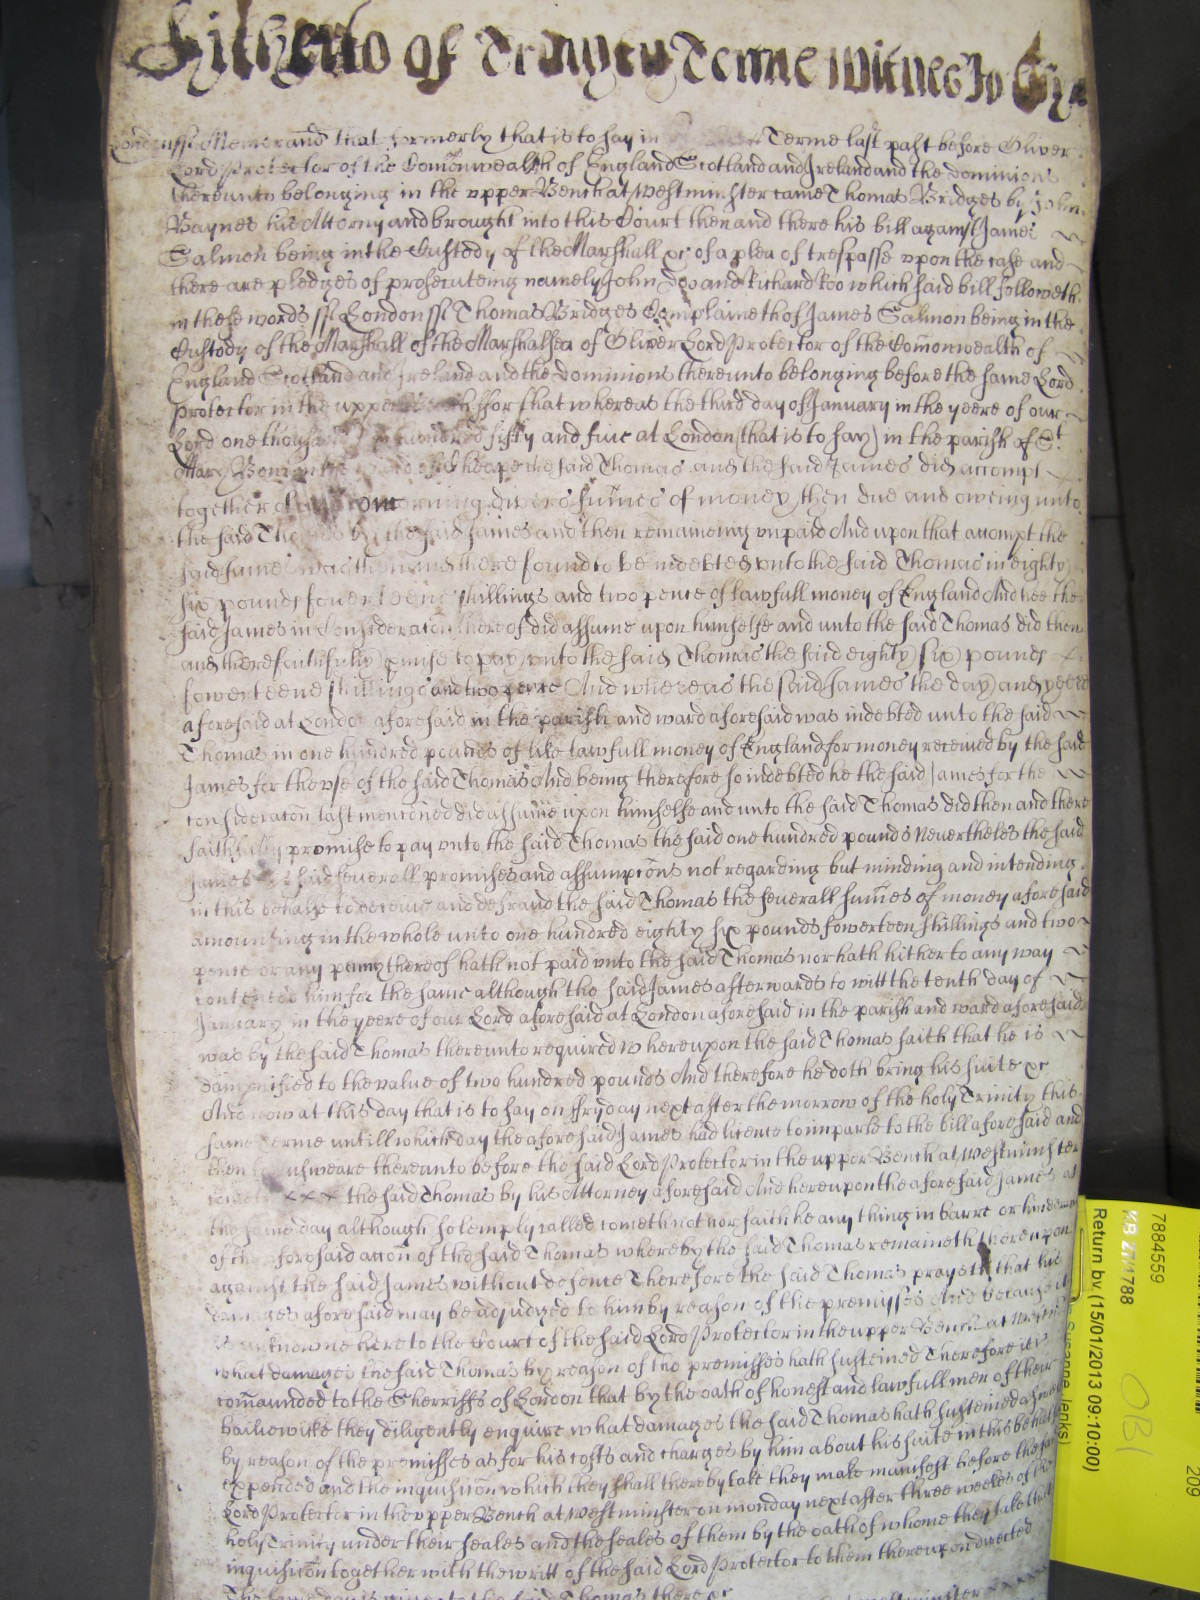 Hitherto of Trinity Terme Witnes Jo
London ss Memorand that formerly that is to say in Terme last past before Oliver
Lord Protector of the Comonwealth of England Scotland and Ireland and the dominions
thereunto belonging in the upper Bench at Westminster came Thomas Bridges by John
Baynes his Attorny and brought into this Court then and there his bill against James
Salmon being in the Custody of the Marshall &c of a plea of trespasse upon the case and
there are pledges of prosecuteing namely John Doo and Richard Roo which said bill followeth
in these words ss London ss Thomas Bridges Complaineth of James Salmon being in the
Custody of the Marshall of the Marshalsea of Oliver Lord Protector of the Comonwealth of
England Scotland and Ireland and the dominions thereunto belonging before the same Lord
Protector in the upper Bench ffor that whereas the third day of January in the yeere of our
Lord one thousand hundred fifty and five at London (that is to say) in the parish of St
Mary of Cheape the said Thomas and the said James did accompt
together of concerning divers sumes of money then due and oweing unto
the said Thomas by the said James and then remaineing unpaid And upon that accompt the
said James was then and there found to be indebted unto the said Thomas in eighty
six pounds fowerteene shillings and two pence of lawfull money of England And hee the
said James in Consideracon thereof did assume upon himselfe and unto the said Thomas did then
and there faithfully pmise to pay unto the said Thomas the said eighty six pounds
fowerteene shillings and two pence And whereas the said James the day and yeere
aforesaid at London aforesaid in the parish and ward aforesaid was indebted unto the said
Thomas in one hundred pounds of like lawfull money of England for money received by the said
James for the use of the said Thomas And being therefore so indebted he the said James for the
consideracon last mencioned did assume upon himselfe and unto the said Thomas did then and there
faithfully promise to pay unto the said Thomas the said one hundred pounds Neverthelesse the said
James his said severall promises and assumpcons not regarding but minding and intending
in this behalfe to deceive and defraud the said Thomas the severall sumes of money aforesaid
amounting in the whole unto one hundred eighty six pounds fowerteen shillings and two
pence or any penny thereof hath not paid unto the said Thomas nor hath hitherto any way
contented him for the same although the said James afterwards to witt the tenth day of
January in the yeere of our Lord aforesaid at London aforesaid in the parish and ward aforesaid
was by the said Thomas thereunto required Whereupon the said Thomas saith that he is
damnified to the value of two hundred pounds And therefore he doth bring his suite &c
And now at this day that is to say on ffryday next after the morrow of the holy Trinity this
same Terme untill which day the aforesaid James had licence to imparle to the bill aforesaid and
then to answeare thereunto before the said Lord Protector in the upper Bench at Westminster
cometh the said Thomas by his Attorney aforesaid And hereupon the aforesaid James at
the same day although solemply called cometh not nor saith he any thing in barre or
of the aforesaid accon of the said Thomas whereby the said Thomas remaineth thereupon
against the said James without defence Therefore the said Thomas prayeth that his
damages aforesaid may be adjudged to him by reason of the premisses And because it
is unknowne here to the Court of the said Lord Protector in the upper Bench at
what damages the said Thomas by reason of the premisses hath susteined Therefore it is
comaunded to the Sherriffs of London that by the oath of honest and lawfull men of their
bailiwike they diligently enquire what damages the said Thomas hath susteined
by reason of the premisses as for his costs and charges by him about his suite in this behalfe
expended and the inquisicon which they shall thereby take they make manifest before the said
Lord Protector in the upper Bench at Westminster on monday next after three weeks of the
holy Trinity under their seales and the seales of them by the oath of whome they take that
inquisicon together with the writt of the said Lord Protector to them thereupon directed
The same day is given to the said Thomas there &c
7884559
KB 27/1788
Return by (15/01/2013 09:10:00)
Susanne Jenks)
OBJ
209